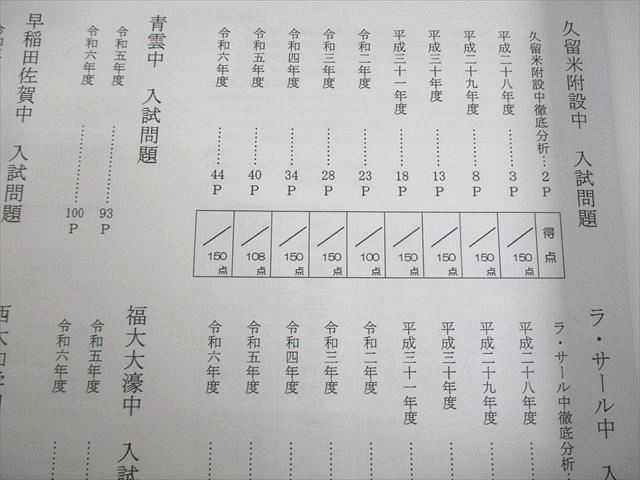 久留米附設中 入試問題
久留米附設中徹底分析…2P
平成二十八年度………3P
平成二十九年度………8P
平成三十年度………13P
平成三十一年度………18P
令和二年度………23P
令和三年度………28P
令和四年度………34P
令和五年度………40P
令和六年度………44P
得点
150点
150点
150点
150点
100点
150点
150点
108点
150点
青雲中 入試問題
令和五年度………93P
令和六年度………100P
早稲田佐賀中 入試問題
ラ・サール中 入
ラ・サール中徹底分析
平成二十八年度
平成二十九年度
平成三十年度
平成三十一年度
令和二年度
令和三年度
令和四年度
令和五年度
令和六年度
福大大濠中 入試
令和五年度
令和六年度